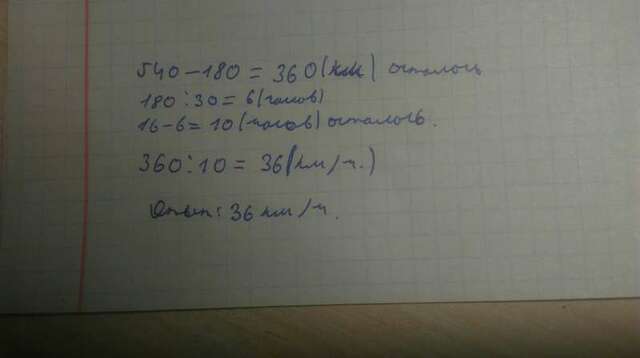 540-180=360(км) осталось
180:30=6(часов)
16-6=10(часов) осталось.
360:10=36(км/ч.)
Ответ: 36 км/ч.